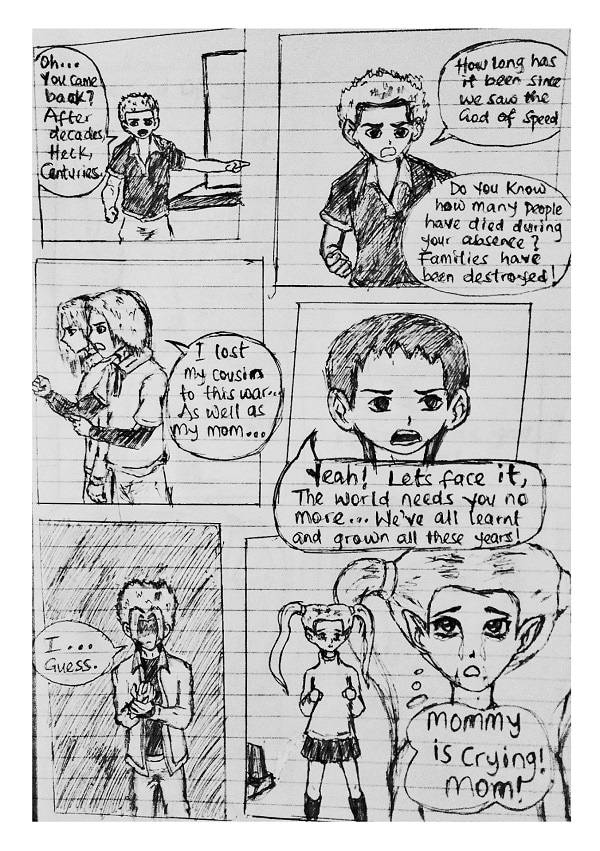 Oh...
You came
back?
After
decades,
Heck,
Centuries.
How long has
it been since
we saw the
God of Speed
Do you know
how many people
have died during
your absence?
Families have
been destroyed!
I lost
my cousins
to this war...
As well as
my mom...
Yeah! Lets face it,
The world needs you no
more... We've all learnt
and grown all these years!
I...
Guess.
Mommy
is crying!
Mom!